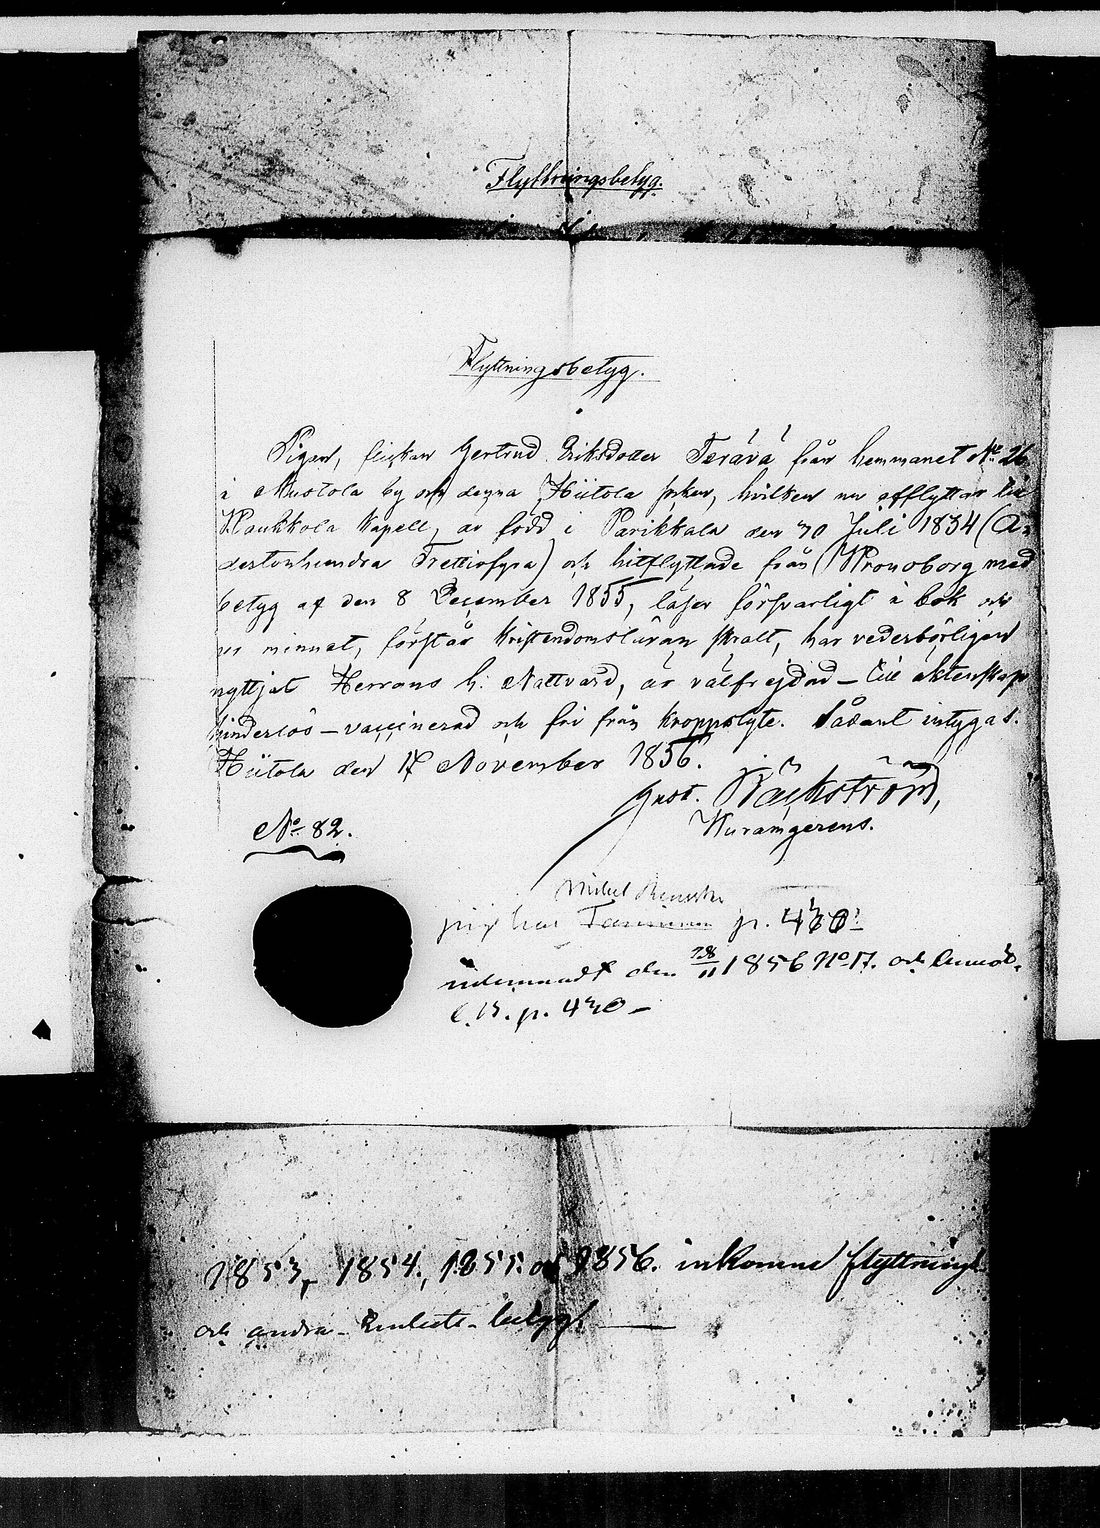 Flyttningsbetyg.
Flyttningsbetyg.
Pigan, flickan Gertrud Eriksdotter Terävä från hemmanet No 26
i Mustola by och denna Hiitola socken, hvilken nu afflyttar till
Kaukkola Kapell, är född i Parikkala den 30 Juli 1834 (A
dertonhundra Trettiofyra) och hitflyttade från Kronoborg med
betyg af den 8 December 1855, läser försvarligt i bok och
ur minnat, förstår Kristendomsläran skralt, har vederbörligen
nyttjat Herrans h: Nattvard, är välfrejdad – till äktenskap
hinderlös – vaccinerad och fri från kroppslyte. Sådant intygas.
Hiitola den 17 November 1856.
Gust. Bäckström,
No 82.
p. 430
den 28/11 1856 No 17. och
C.B. p. 430 –
1853, 1854, 1855 och 1856. inkomne flyttnings
och andra betyg.